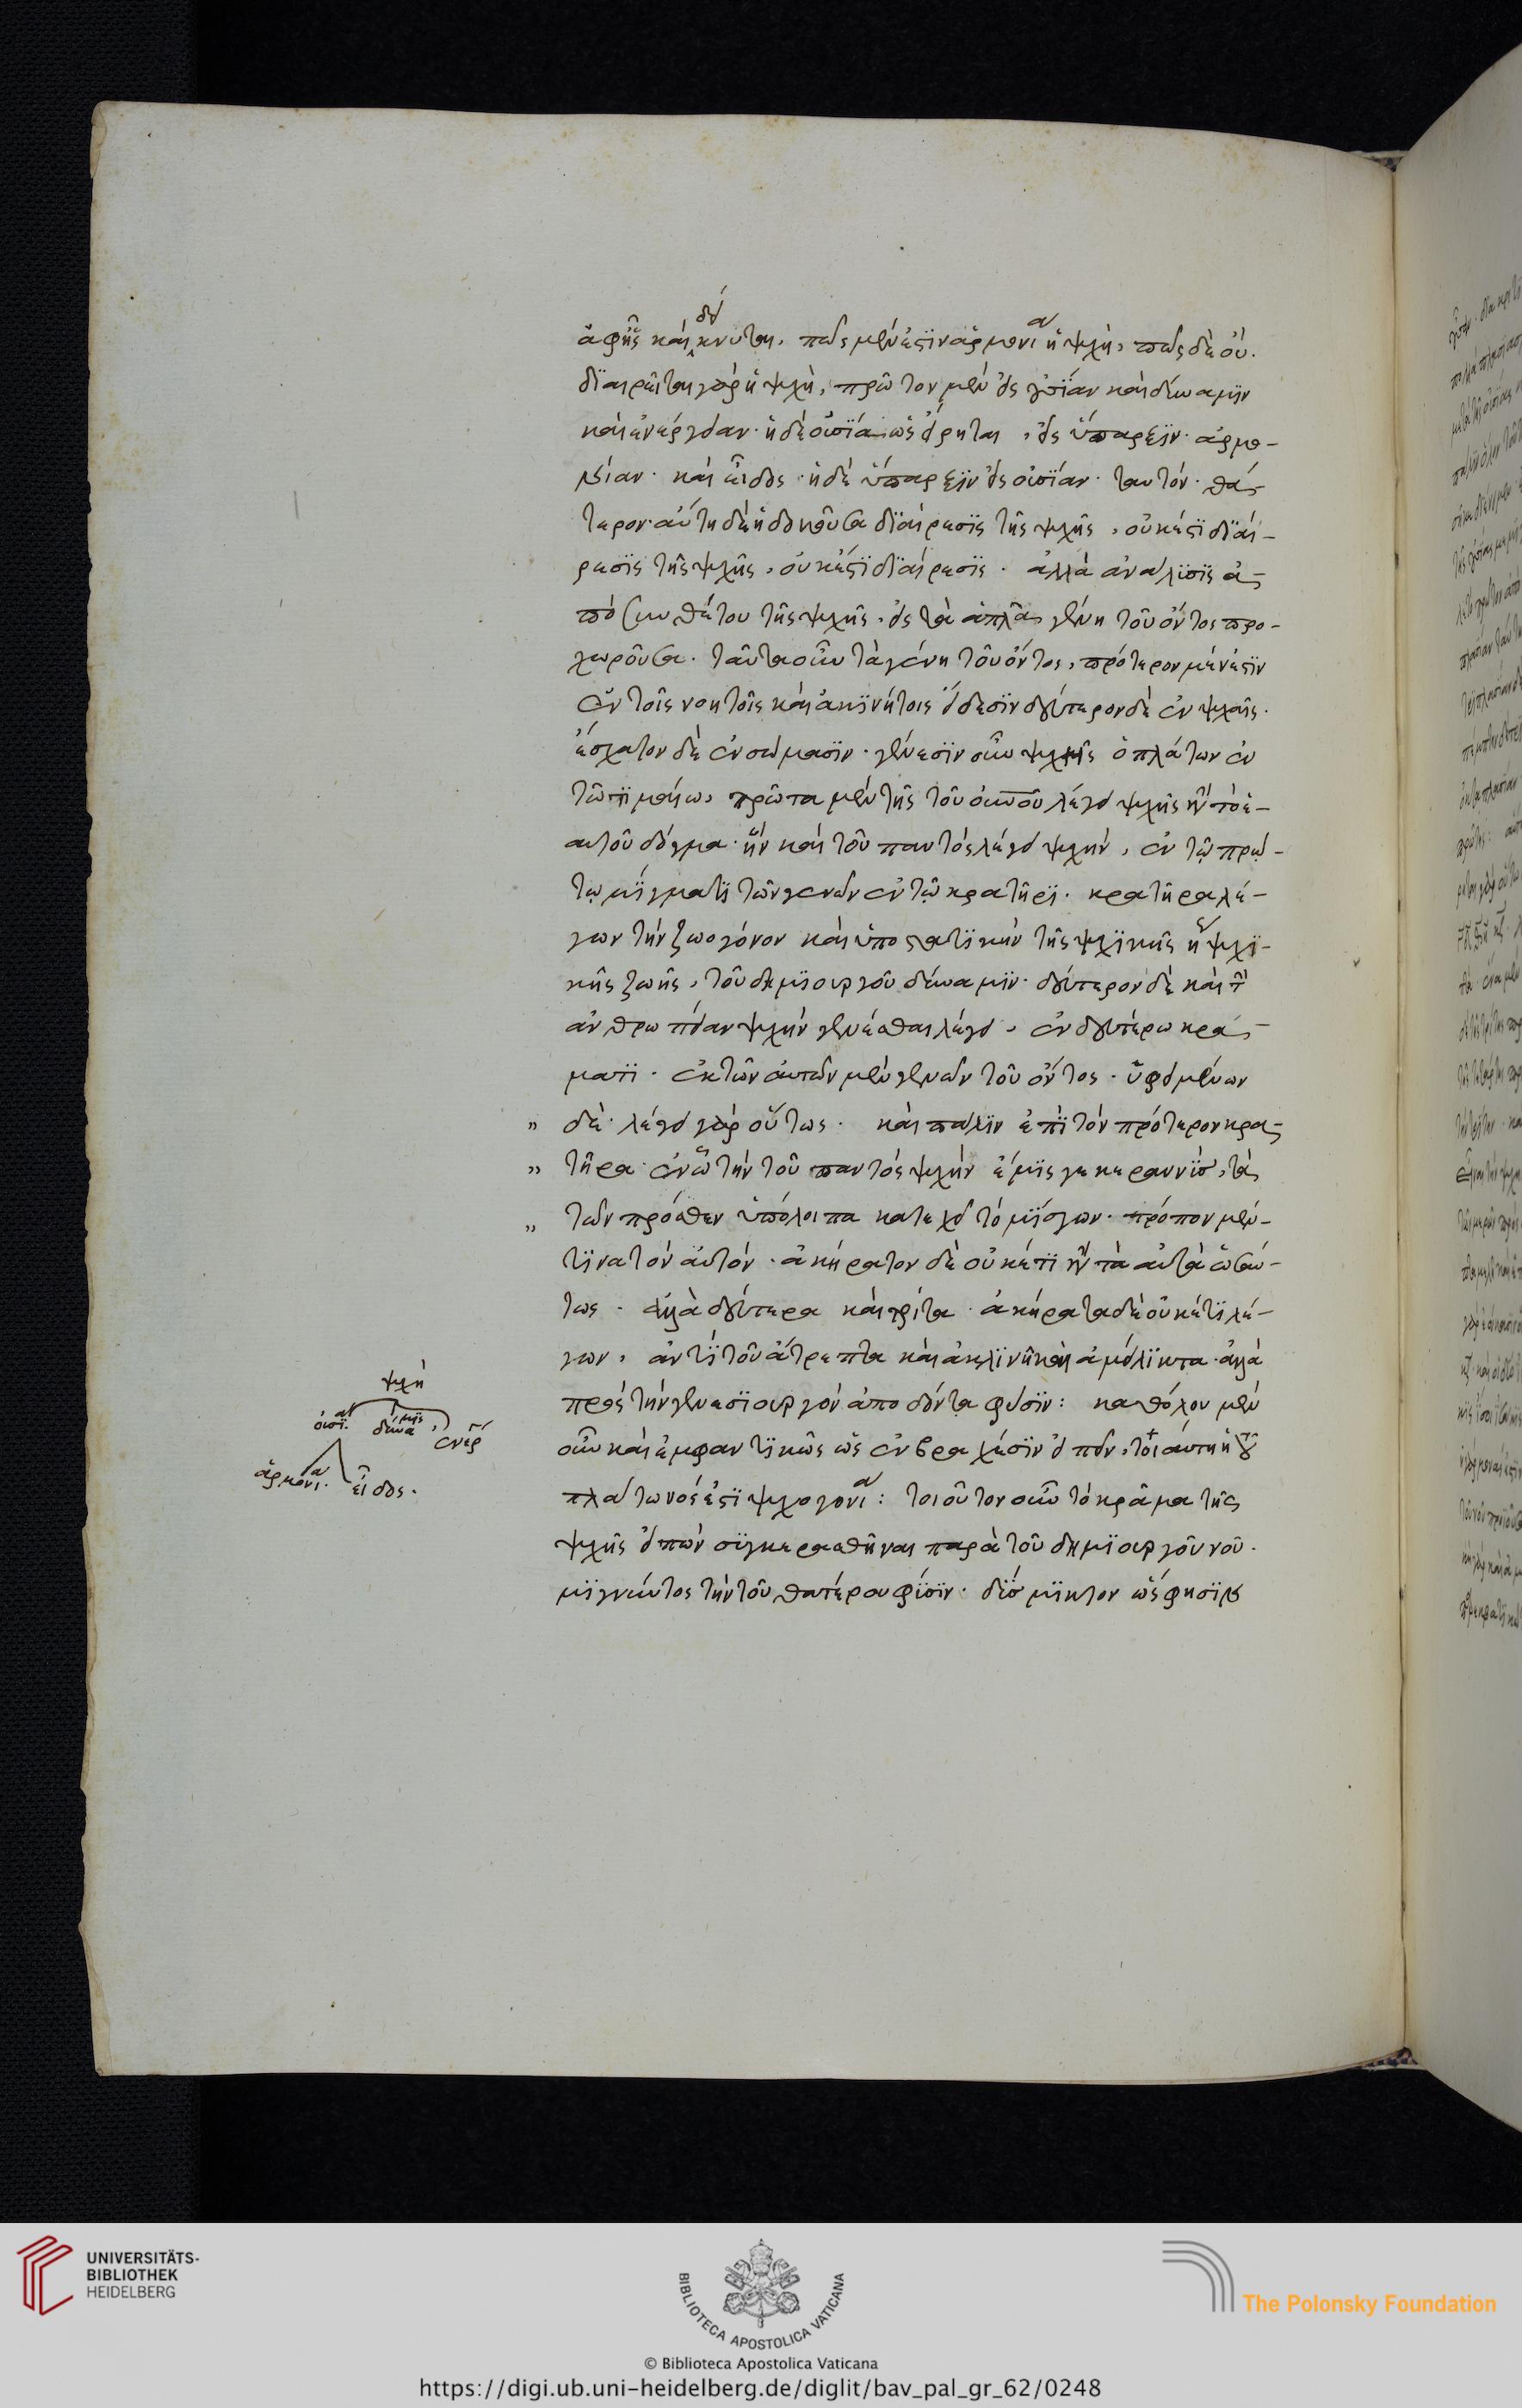 ἀφῆς καὶ δείκνυται, πῶς μέν ἐστιν ἁρμονία ἡ ψυχὴ, πῶς δὲ οὔ.
διαιρεῖται γὰρ ἡ ψυχὴ, πρῶτον μὲν εἰς οὐσίαν καὶ δύναμιν
καὶ ἐνέργειαν· ἡ δὲ οὐσία ὡς εἴρηται, εἰς ὕπαρξιν· ἁρμο-
νίαν· καὶ εἶδος· ἡ δὲ ὕπαρξιν εἰς οὐσίαν· ταυτόν· θά-
τερον· αὕτη δὲ ἡ δοκοῦσα διαίρεσις τῆς ψυχῆς, οὐκ ἔστι διαί-
ρεσις τῆς ψυχῆς, οὐκ ἔστι διαίρεσις· ἀλλὰ ἀνάλυσις ἀ-
πὸ συνθέτου τῆς ψυχῆς, εἰς τὰ ἁπλᾶ γένη τοῦ ὄντος προ-
χωροῦσα· ταῦτα οὖν τὰ γένη τοῦ ὄντος, πρότερον μέν ἐστιν
ἐν τοῖς νοητοῖς καὶ ἀκινήτοις εἴδεσιν δεύτερον δὲ ἐν ψυχαῖς·
ἔσχατον δὲ ἐν σώμασιν· γένεσιν οὖν ψυχῆς ὁ πλάτων ἐν
τῶ τιμαίω, πρῶτα μὲν τῆς τοῦ οὐνοῦ λέγει ψυχῆς
αυτοῦ δόγμα· ἣν καὶ τοῦ παντὸς λέγει ψυχήν, ἐν τῷ πρώ-
τῳ μίγματι τῶν γενῶν ἐν τῷ κρατῆρι· κρατῆρα λέ-
γων τὴν ζωογόνον καὶ ὑποστατικὴν τῆς ψυχικῆς ἢ ψυχι-
κῆς ζωῆς, τοῦ δημιουργοῦ δύναμιν· δεύτερον δὲ καὶ τὴν
ἀνθρωπείαν ψυχὴν γενέσθαι λέγει, ἐν δευτέρω κρά-
ματι· ἐκ τῶν αὐτῶν μὲν γενῶν τοῦ ὄντος· ὑφειμένων
" δὲ· λέγει γὰρ οὕτως· καὶ πάλιν ἐπὶ τὸν πρότερον κρα-
" τῆρα· ἐν ᾧ τὴν τοῦ παντὸς ψυχὴν ἔμισγε κεραννὺς, τὰ
" τῶν πρόσθεν ὑπόλοιπα κατεχεῖ τὸ μίσγων· τρόπον μέν-
τινα τὸν αὐτόν· ἀκήρατον δὲ οὐκέτι κατὰ τὰ αὐτὰ ὡσαύ-
τως· ἀλλὰ δεύτερα καὶ τρίτα· ἀκήρατα δὲ οὐκέτι λέ-
γων, ἀντὶ τοῦ ἄτρεπτα καὶ ἀκλινῆ καὶ ἀμείλικτα· ἀλλὰ
πρὸς τὴν γενεσιουργὸν ἀποδόντα φύσιν: καθόλου μὲν
οὖν καὶ ἐμφαντικῶς ὡς ἐν βραχέσιν εἰπεῖν, τοιαύτη ἡ τοῦ
πλάτωνός ἐστι ψυχογονία: τοιοῦτον οὖν τὸ κρᾶμα τῆς
ψυχῆς εἰπὼν συγκερασθῆναι παρὰ τοῦ δημιουργοῦ νοῦ·
μιγνύντος τὴν τοῦ θατέρου φύσιν· δύσμικτον ὥς φησιν
ψυχὴ
οὐσία δύναμις ἐνέρ
ἁρμονία. εἶδος.
UNIVERSITÄTS-
BIBLIOTHEK
HEIDELBERG
BIBLIOTECA APOSTOLICA VATICANA
The Polonsky Foundation
© Biblioteca Apostolica Vaticana
https://digi.ub.uni-heidelberg.de/diglit/bav_pal_gr_62/0248